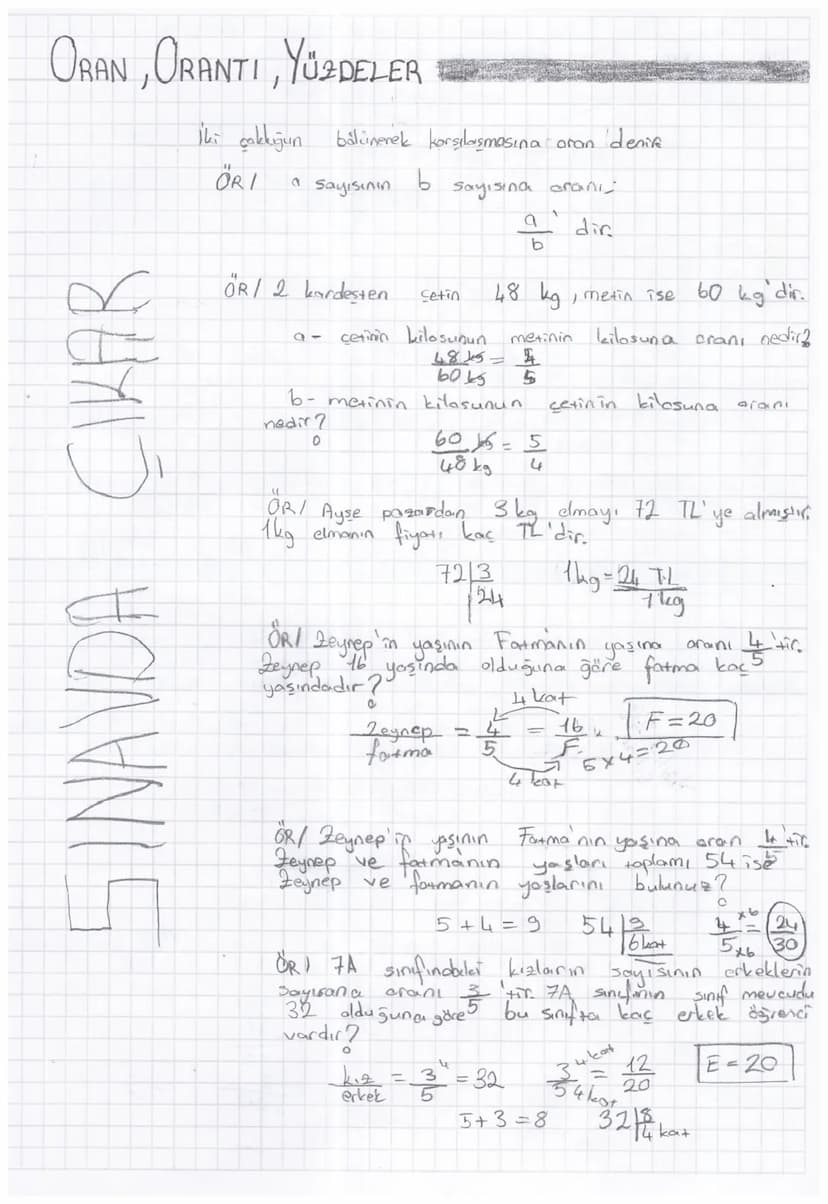 ORAN, ORANTI, YÜZDELER
SINAVDA ÇIKAR
İki çokluğun bölünerek karşılaşmasına oran denir
ÖR/ a sayısının b sayısına oranı;
a/b' dir.
ÖR/ 2 kardeşten Çetin 48 kg, metin ise 60 kg'dir.
a- çetinin kilosunun metinin kilosuna oranı nedir?
48 kg / 60 kg = 4/5
b- metinin kilosunun çetinin kilosuna oranı
nedir?
60 kg / 48 kg = 5/4
ÖR/ Ayşe pazardan 3 kg elmayı 72 TL'ye almıştır.
1kg elmanın fiyatı kaç TL'dir.
72|3 1kg = 24 TL
24 1 kg
ÖR/ Zeynep'in yaşının Fatmanın yaşına oranı 4/5'tir.
Zeynep 16 yaşında olduğuna göre fatma kaç
yaşındadır?
4 kat
Zeynep / fatma = 4/5 = 16/F F = 20
5x4=20
4 kat
ÖR/ Zeynep'in yaşının Fatma'nın yaşına oran 4/5'tir.
Zeynep ve fatmanın yaşları toplamı 54 ise
Zeynep ve fatmanın yaşlarını bulunuz?
5+4=9 54|9 6 kat 4/5 x6 x6 = 24/30
ÖR) 7A sınıfındaki kızların sayısının erkeklerin
sayısına oranı 3/5'tir. 7A sınıfının sınıf mevcudu
32 olduğuna göre bu sınıfta kaç erkek öğrenci
vardır?
kız / erkek = 3/5 = 32 3/5 4 kat 4 kat = 12/20 E = 20
5+3=8 32|8 4 kat